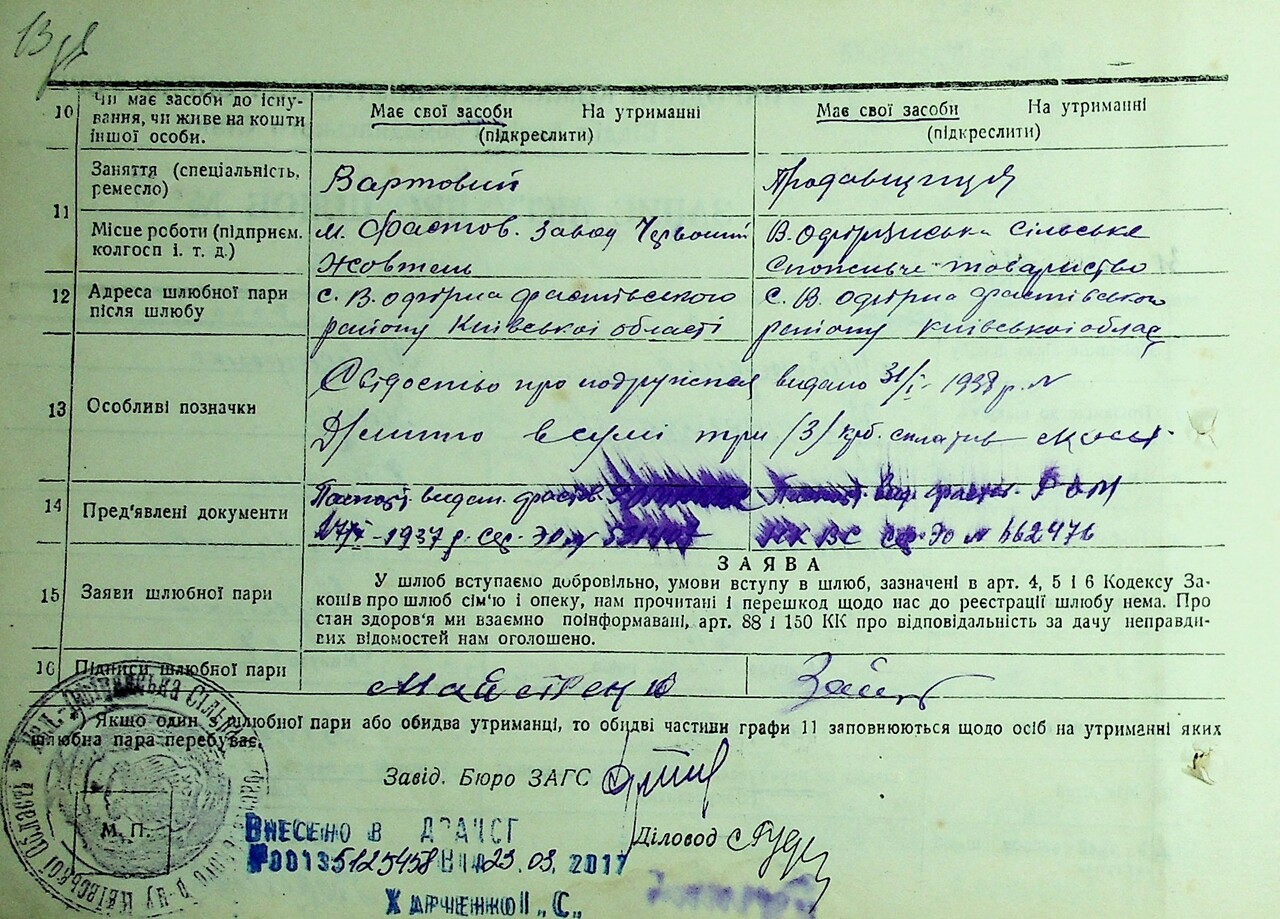 10 Чи має засоби до існу-
вання, чи живе на кошти
іншої особи.
Має свої засоби На утриманні
(підкреслити)
Має свої засоби На утриманні
(підкреслити)
11 Заняття (спеціальність,
ремесло)
Вартовий
Продавщиця
Місце роботи (підприєм.
колгосп і. т. д.)
м. Фастов. завод Червоний
Жовтень
Сільське
Споживче товариство
12 Адреса шлюбної пари
після шлюбу
с. В. Офірна Фастівського
району Київської області
с. В. Офірна Фастівського
району Київської облас
13 Особливі позначки
про подружжя видано 31/I-1938 р. №
Мито в сумі три /3/ крб. сплатив
14 Пред'явлені документи
Паспорт видан. Фастів.
-1937 р. № 
вид. Фастов. РОМ
НКВС № 662476
15 Заяви шлюбної пари
ЗАЯВА
У шлюб вступаємо добровільно, умови вступу в шлюб, зазначені в арт. 4, 5 і 6 Кодексу За-
конів про шлюб сім'ю і опеку, нам прочитані і перешкод щодо нас до реєстрації шлюбу нема. Про
стан здоров'я ми взаємно поінформавані, арт. 88 і 150 КК про відповідальність за дачу неправди-
вих відомостей нам оголошено.
16 Підписи шлюбної пари
Майстренко
) Якщо один з шлюбної пари або обидва утриманці, то обидві частини графи 11 заповнюються щодо осіб на утриманні яких
шлюбна пара перебуває.
Завід. Бюро ЗАГС
М. П.
Діловод
ВНЕСЕНО В ДРАЦСГ
№00135125458 ВІД 23.03.2017
ХАРЧЕНКО І. „С„